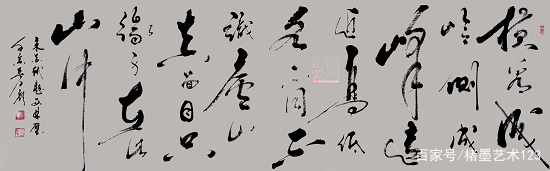 横看成
岭侧成
峰远
近高低
各不同不
识庐山
真面目只
缘身在此
山中
百家号/楮墨艺术123